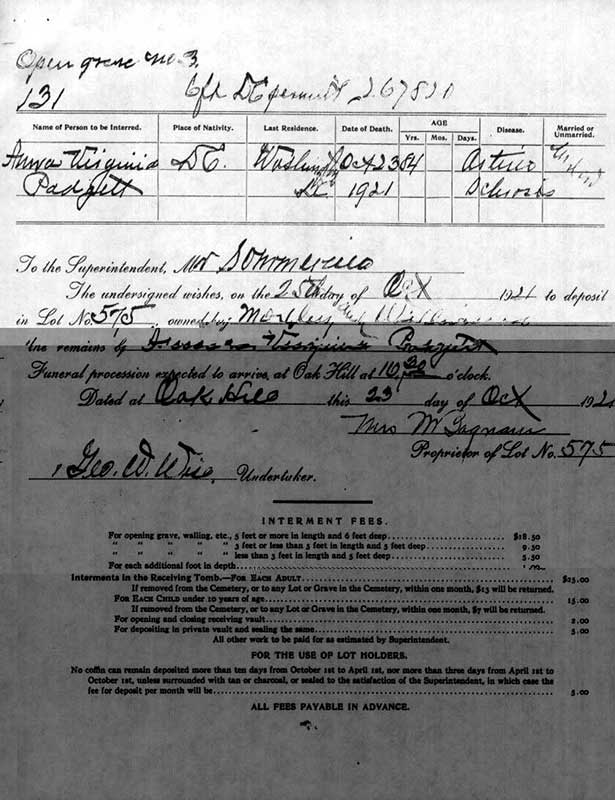 Open grave no 3.
131
D.C. permit 267820
AGE
Name of Person to be Interred. Place of Nativity. Last Residence. Date of Death. Yrs. Mos. Days. Disease. Married or Unmarried.
Anna Virginia D.C. Oct 23 84
Padgett D.C. 1921
To the Superintendent, Mr
The undersigned wishes, on the 25th day of Oct 1921 to deposit
in Lot No. 575 owned by
the remains of Virginia Padgett
Funeral procession expected to arrive at Oak Hill at 10 30 o'clock.
Dated at Oak Hill this 23 day of Oct 1921
Mrs
Proprietor of Lot No. 575
Geo. W. Wise, Undertaker.
INTERMENT FEES.
For opening grave, walling, etc., 5 feet or more in length and 6 feet deep $18.50
" " " " 3 feet or less than 5 feet in length and 5 feet deep 9.50
" " " " less than 3 feet in length and 5 feet deep 5.50
For each additional foot in depth
Interments in the Receiving Tomb.—FOR EACH ADULT $25.00
If removed from the Cemetery, or to any Lot or Grave in the Cemetery, within one month, $13 will be returned.
FOR EACH CHILD under 10 years of age 15.00
If removed from the Cemetery, or to any Lot or Grave in the Cemetery, within one month, $7 will be returned.
For opening and closing receiving vault 2.00
For depositing in private vault and sealing the same 5.00
All other work to be paid for as estimated by Superintendent.
FOR THE USE OF LOT HOLDERS.
No coffin can remain deposited more than ten days from October 1st to April 1st, nor more than three days from April 1st to
October 1st, unless surrounded with tan or charcoal, or sealed to the satisfaction of the Superintendent, in which case the
fee for deposit per month will be 5.00
ALL FEES PAYABLE IN ADVANCE.